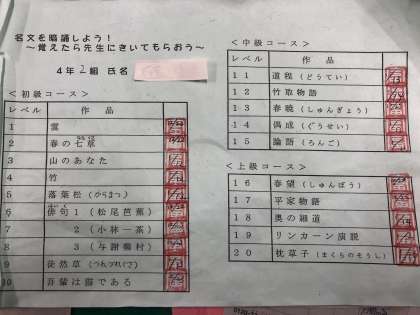 名文を暗誦しよう！
～覚えたら先生にきいてもらおう～
4年2組 氏名
＜初級コース＞
レベル 作品
1 雲
2 春の七草
3 山のあなた
4 竹
5 落葉松（からまつ）
6 俳句1（松尾芭蕉）
7 2（小林一茶）
8 3（与謝蕪村）
9 徒然草（つれづれぐさ）
10 吾輩は猫である
＜中級コース＞
レベル 作品
11 道程（どうてい）
12 竹取物語
13 春暁（しゅんぎょう）
14 偶成（ぐうせい）
15 論語（ろんご）
＜上級コース＞
16 春望（しゅんぼう）
17 平家物語
18 奥の細道
19 リンカーン演説
20 枕草子（まくらのそうし）